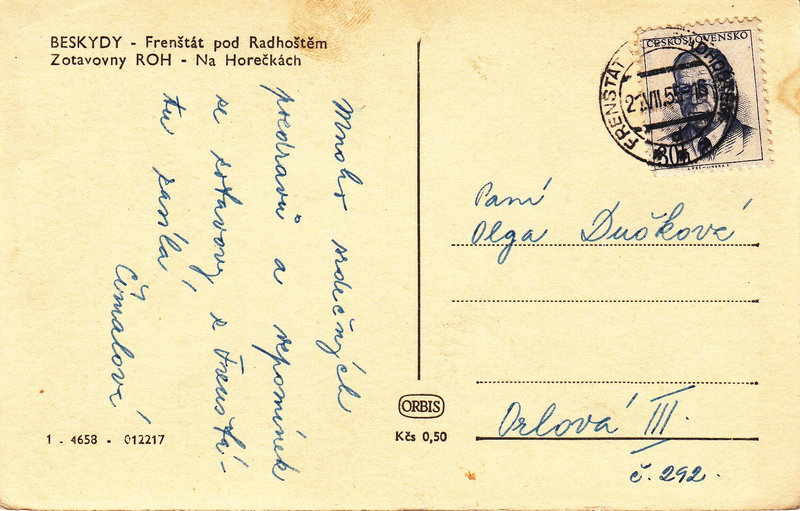 BESKYDY - Frenštát pod Radhoštěm
Zotavovny ROH - Na Horečkách
Mnoho srdečných
pozdravů a vzpomínek
ze zotavovny z Frenštá-
tu zasílá
Čímalová
1 - 4658 - 012217
ORBIS
Kčs 0,50
ČESKOSLOVENSKO
FRENŠTÁT
VII.55
30h
Paní
Olga Dušková
Orlová III
č. 292.